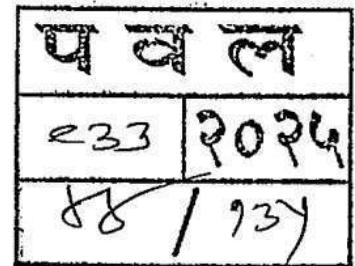 प व ल
९३३ २०२५
४४ / १३५